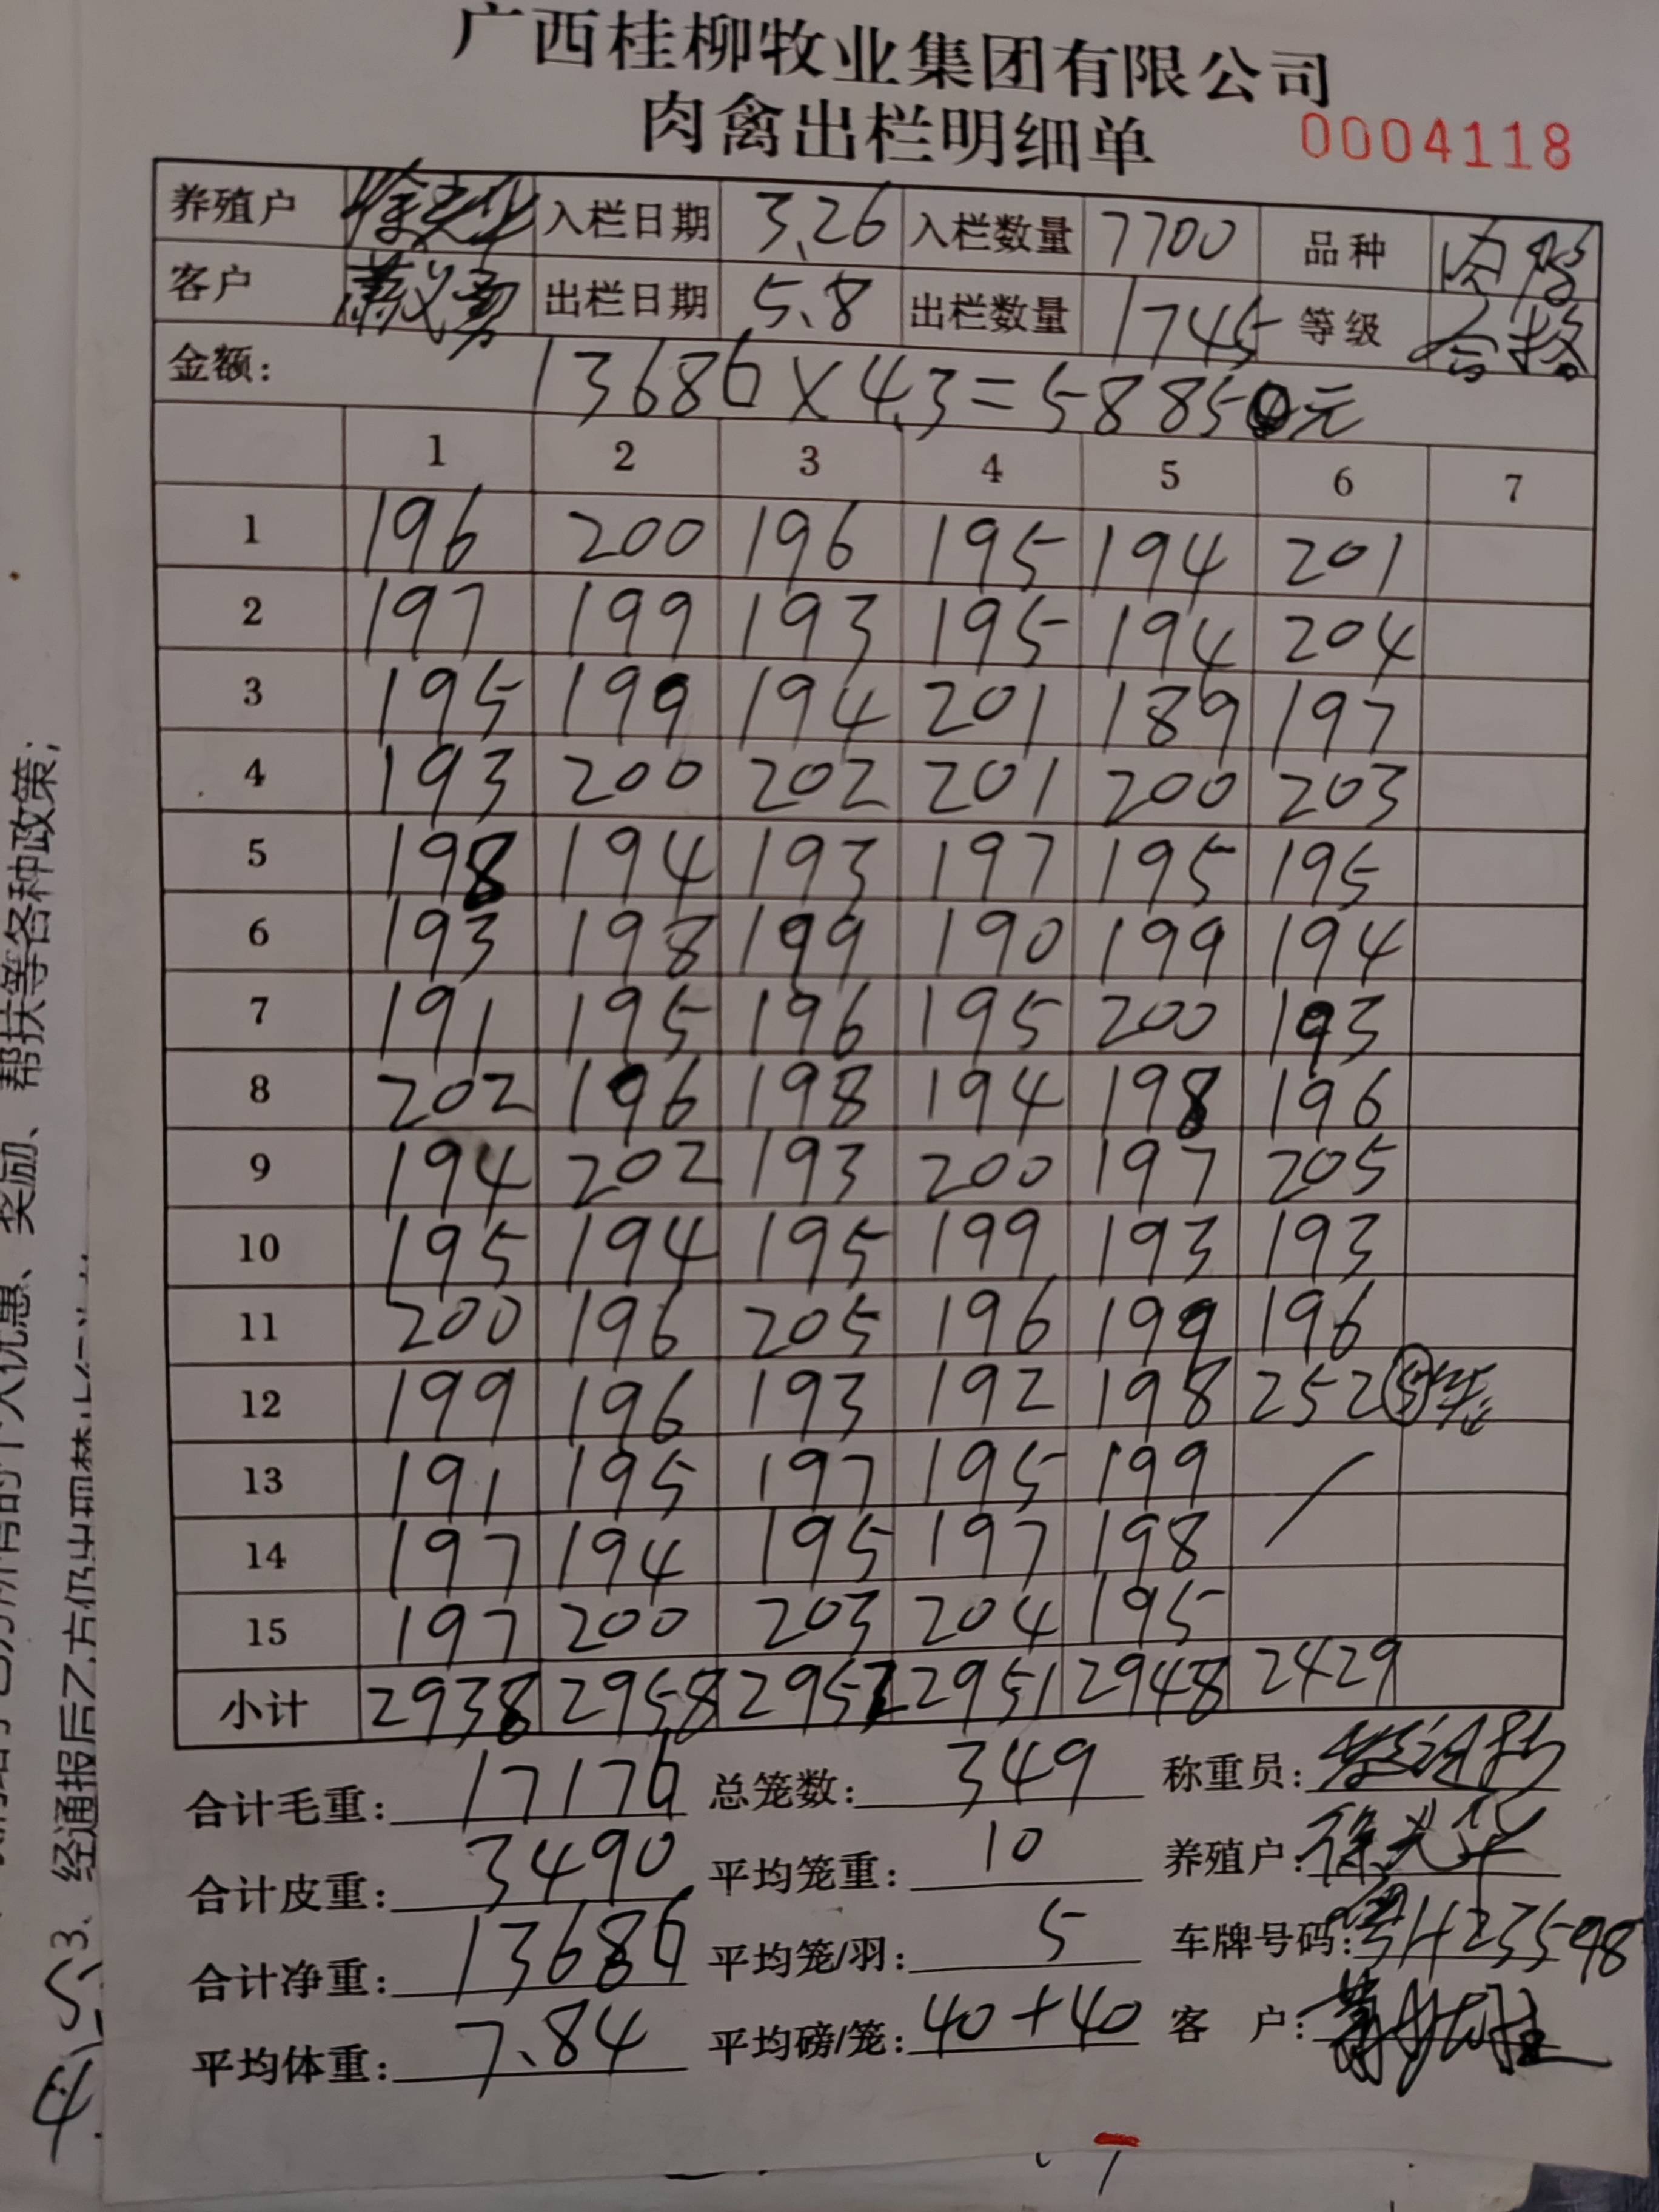 广西桂柳牧业集团有限公司
肉禽出栏明细单 0004118
养殖户 入栏日期 3.26 入栏数量 7700 品种
客户 出栏日期 5.8 出栏数量 1745 等级 合格
金额: 13686×4.3=58850元
1 2 3 4 5 6 7
1 196 200 196 195 194 201
2 197 199 193 195 194 204
3 195 199 194 201 189 197
4 193 200 202 201 200 203
5 198 194 193 197 195 195
6 193 198 199 190 199 194
7 191 195 196 195 200 193
8 202 196 198 194 198 196
9 194 202 193 200 197 205
10 195 194 195 199 193 193
11 200 196 205 196 199 196
12 199 196 193 192 198 252
13 191 195 197 195 199
14 197 194 195 197 198
15 197 200 203 204 195
小计 2938 2958 2952 2951 2948 2429
合计毛重: 17176 总笼数: 349 称重员:
合计皮重: 3490 平均笼重: 10 养殖户:
合计净重: 13686 平均笼/羽: 5 车牌号码:
平均体重: 7.84 平均磅/笼: 40+40 客户:
帮扶等各种政策;
3、经通报后乙方仍出现禁